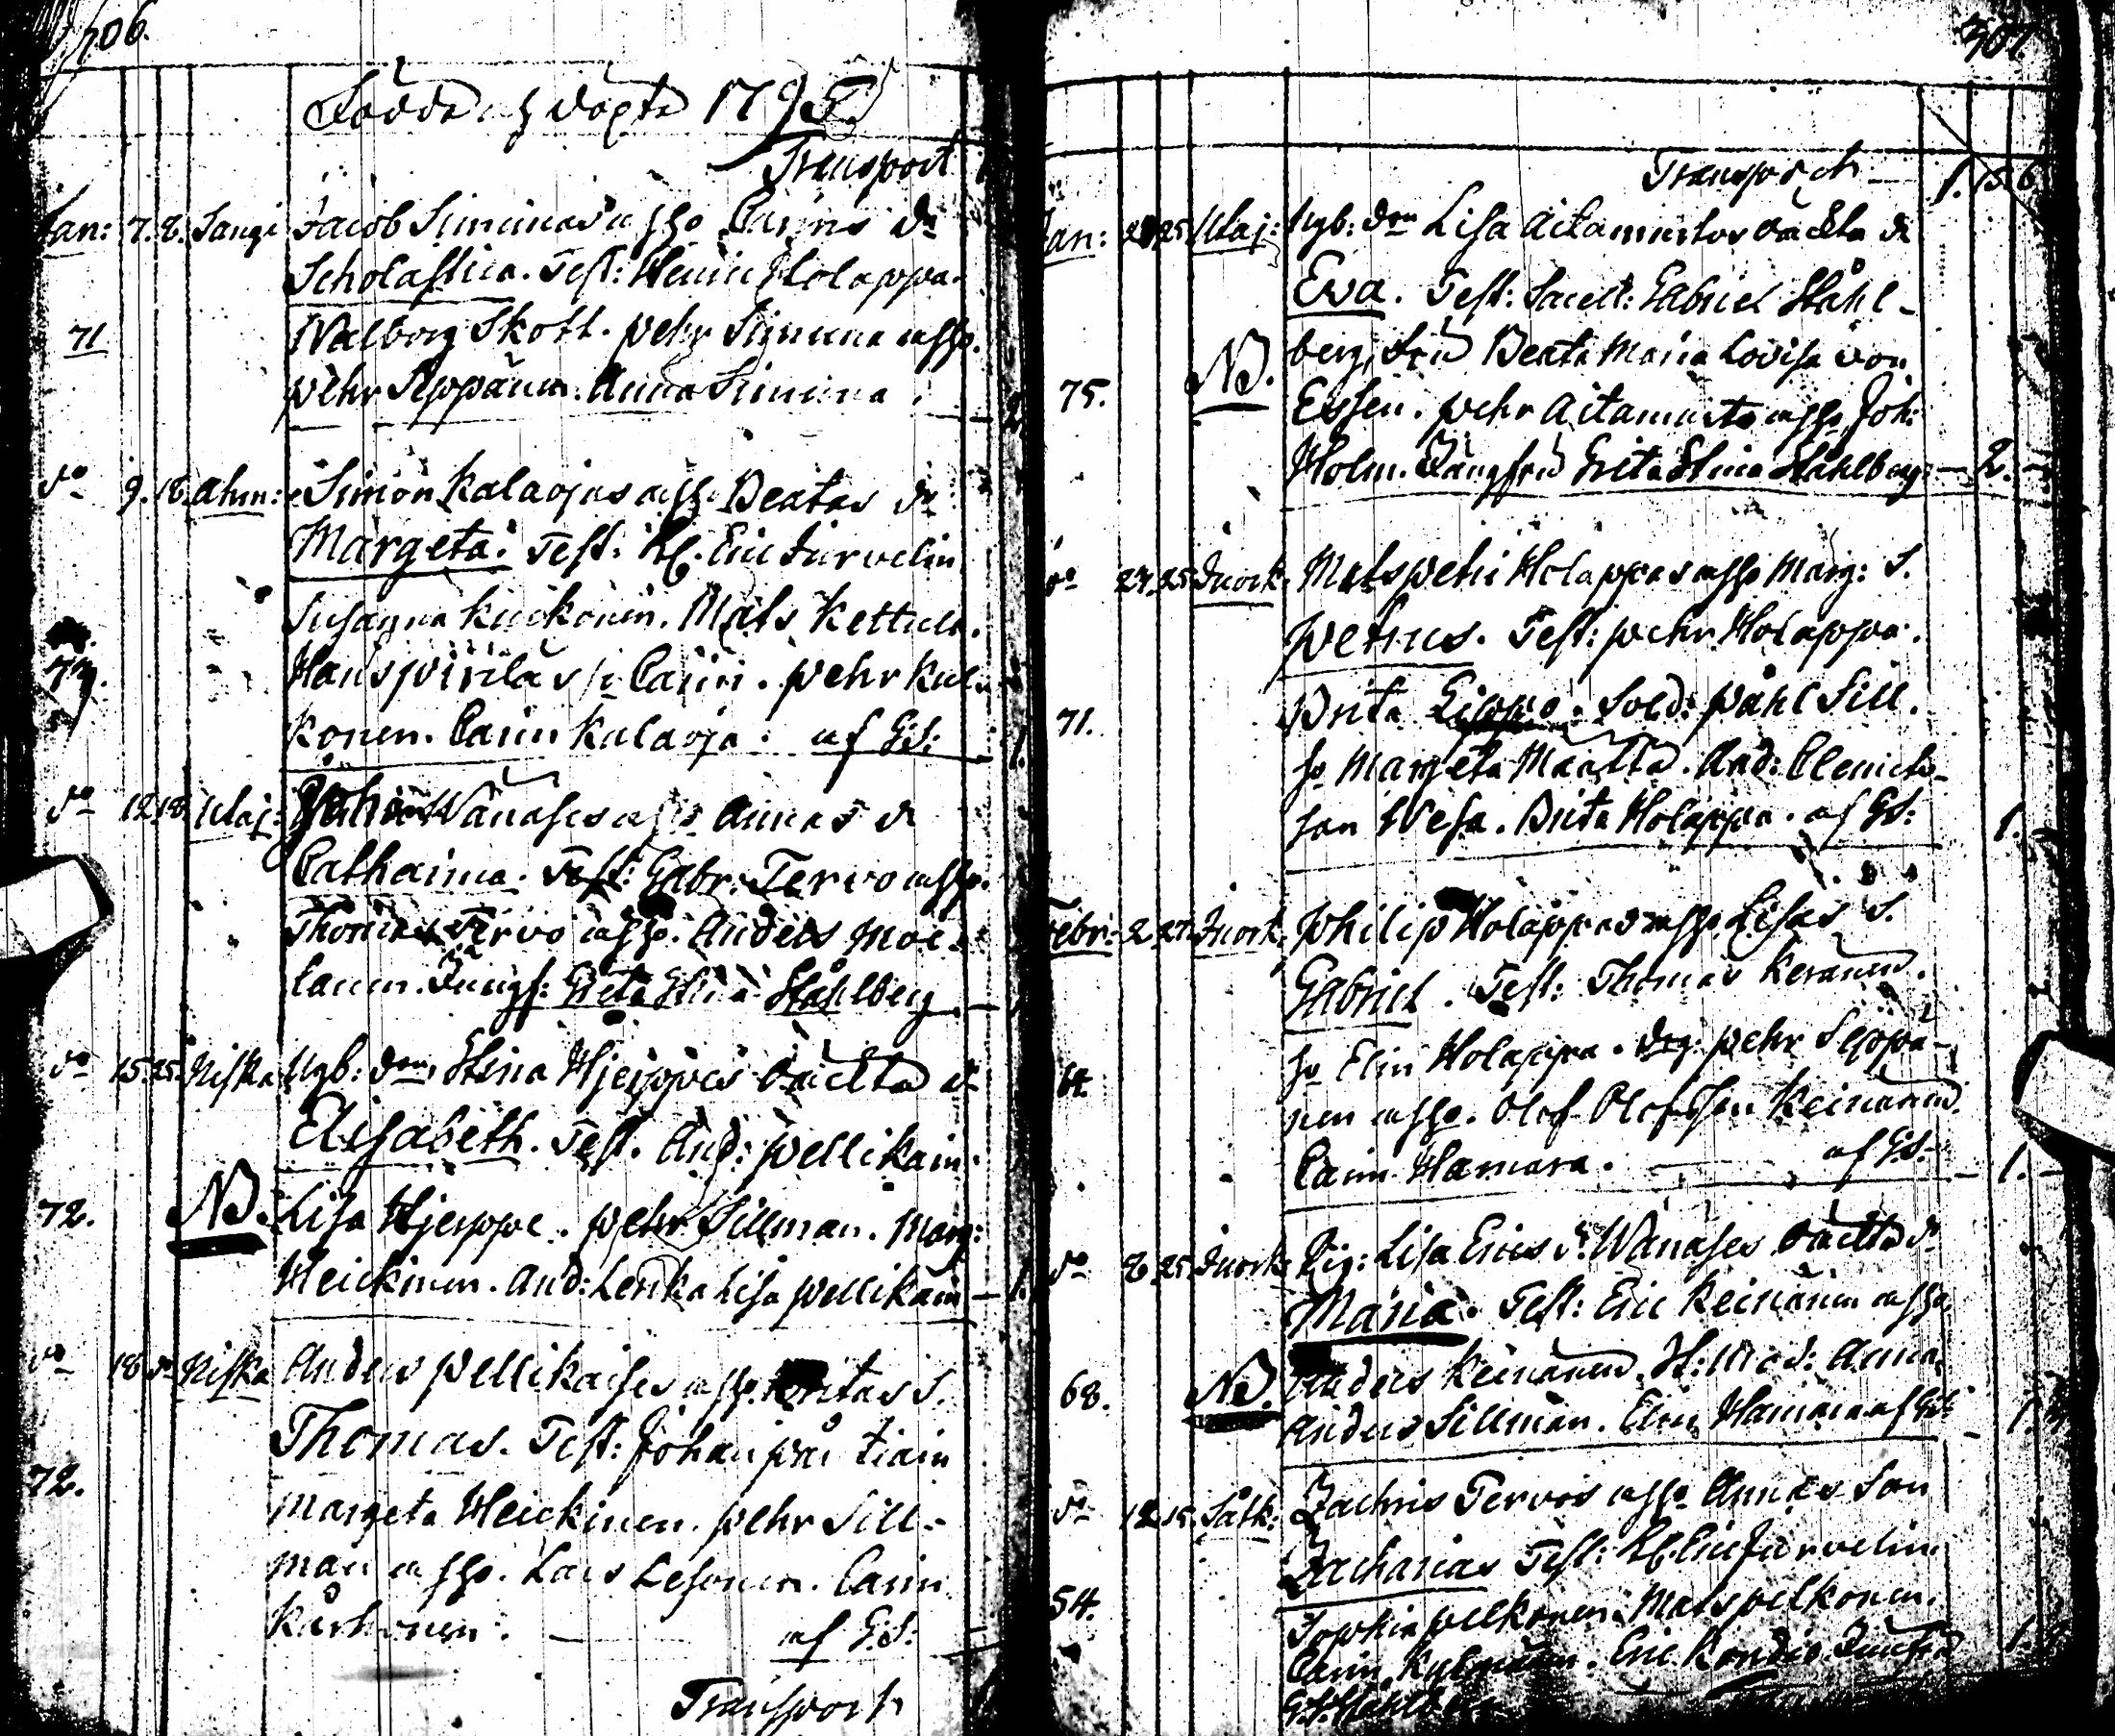 306.
Födde och döpte 1795
Transport
Jan: 7. 8. Sangi Jacob Simunas u hho Carins dr
Scholastica. Test: Henric Holappa.
71 Walborg Skott. Pehr Simuna u hho.
Pehr Seppänen. Anna Simuna
do 9. 18. Ahm: Simon Kalaojas u hho Beatas dr
Margeta. Test: Kl. Eric Jurvelin
Susanna Kuikonen. Mats Kettule.
Hans Pirilä Carin. Pehr Kui-
konen. Carin Kalaoja. af G.S: 1.
do 12. 18. Utaj: Johan Wänäses u hho Annas dr
Catharina. Test: Gabr: Tervo u hho.
Thomas Tervo u hho. Anders Moi-
lanen. Jungf: Greta Stina Ståhlberg
do 15. 25. Niska Ugb: don Stina Hjerppes oäckta dr
Elisabeth. Test. And: Pellikain
72. NB. Lisa Hjerppe. Pehr Sillman. Marg:
Heickinen. And: Lenka Lisa Pellikain 1.
do 18 do Niska Anders Pellikaises u hho Britas S.
Thomas. Test: Johan Partiain
72. Margeta Heickinen. Pehr Sill-
man u hho. Lars Lesonen. Carin
Karhonen. af G.S:
Transport
307
Transport 1. 15. 6
Jan: 25. Utaj: Ugb: don Lisa Aitamurtos oäckta dr
Eva. Test: Sacell: Gabriel Ståhl-
berg, Fru Beata Maria Lovisa von
75. NB. Essen. Pehr Aitamurto u hho Joh:
Holm. Jungfru Greta Stina Ståhlberg: 2.
do 24. 25. Juork. Mats Pehr Holappas u hho Marg: S.
Petrus. Test: Pehr Holappa.
71. Brita Leppo. Sold: Påhl Sill.
ho Margeta Määttä. And: Clemets-
son Wesa. Brita Holappa. af G.S: 1.
Febr: 2 27. Juork. Philip Holappas u hho Lisas S.
Gabriel. Test: Thomas Keränen.
64. ho Elin Holappa. Dr: Pehr Seppä-
nen u hho. Olof Olofsson Keinänen.
Carin Hamara. af G.S: 1.
do 8 25. Juork. Pig: Lisa Erics dr Wänäses oäckta dr
Maria. Test: Eric Keinänen u hho
68. NB. Anders Keinänen. H: Mod: Anna
Anders Sillman. Elin Hamara af G.S: 1.
do 12 15. Sätk: Zachris Tervos u hho Annas Son
Zacharias Test: Kl. Eric Jurvelin
54. Sophia Pelkonen. Mats Pelkonen.
Carin Kylmänen. Eric Kondio. Jungfru
G.S. Ståhlberg